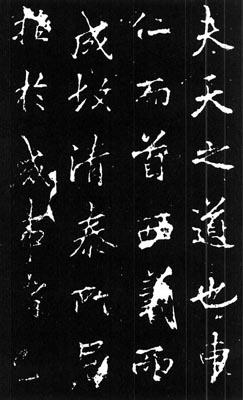 夫天之道也東
仁而首西義而
成故清泰所居
指於成事者